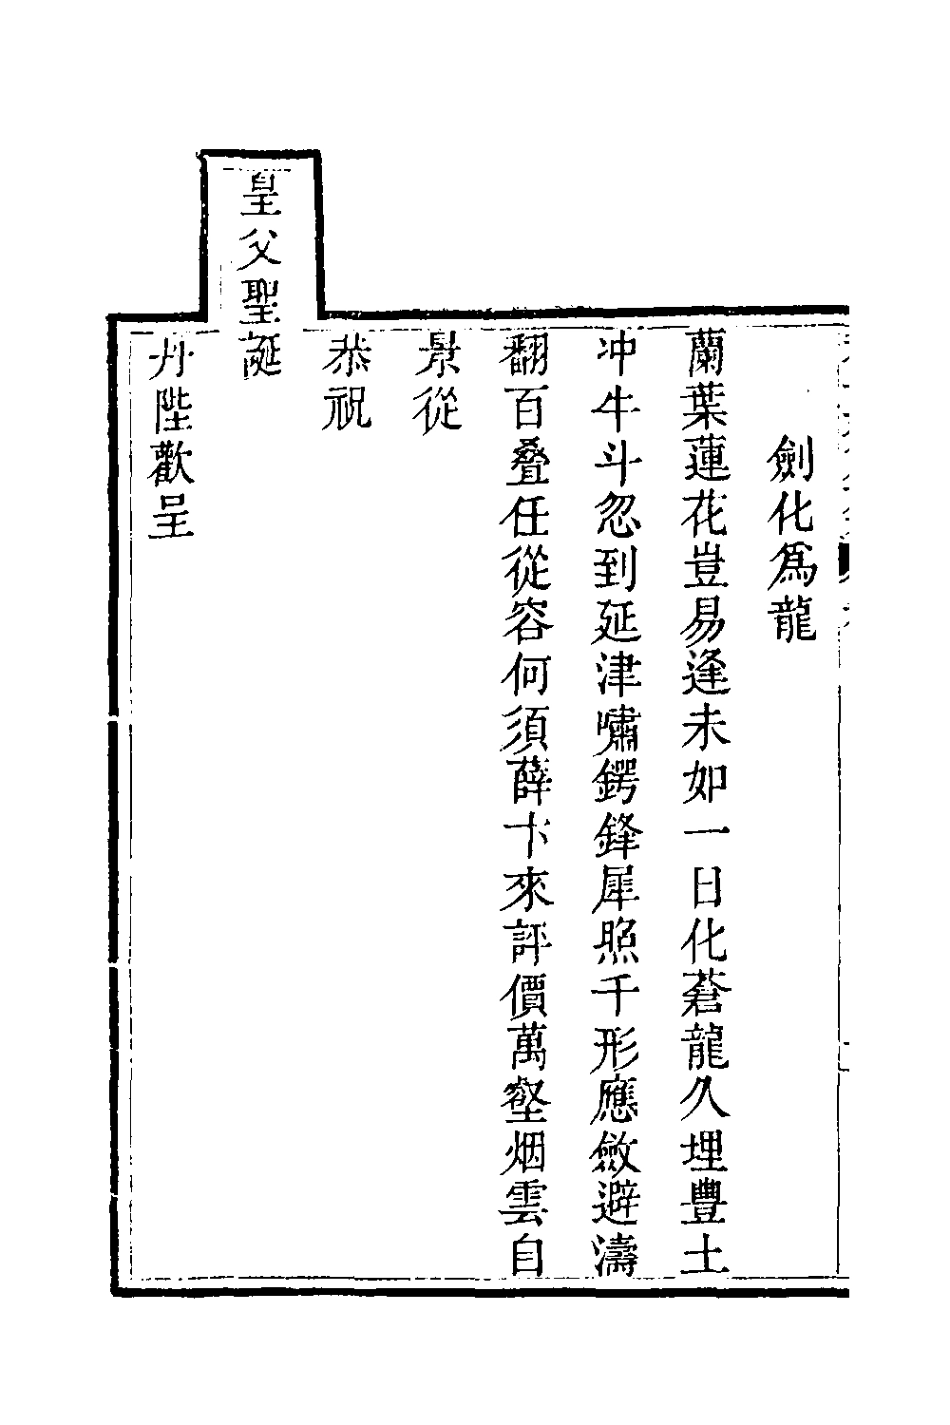 劍化爲龍
蘭葉蓮花豈易逢未如一日化蒼龍久埋豐土
冲牛斗忽到延津嘯鍔鋒犀照千形應斂避濤
翻百叠任從容何須薛卞來評價萬壑烟雲自
景從
恭祝
皇父聖誕
丹陛歡呈